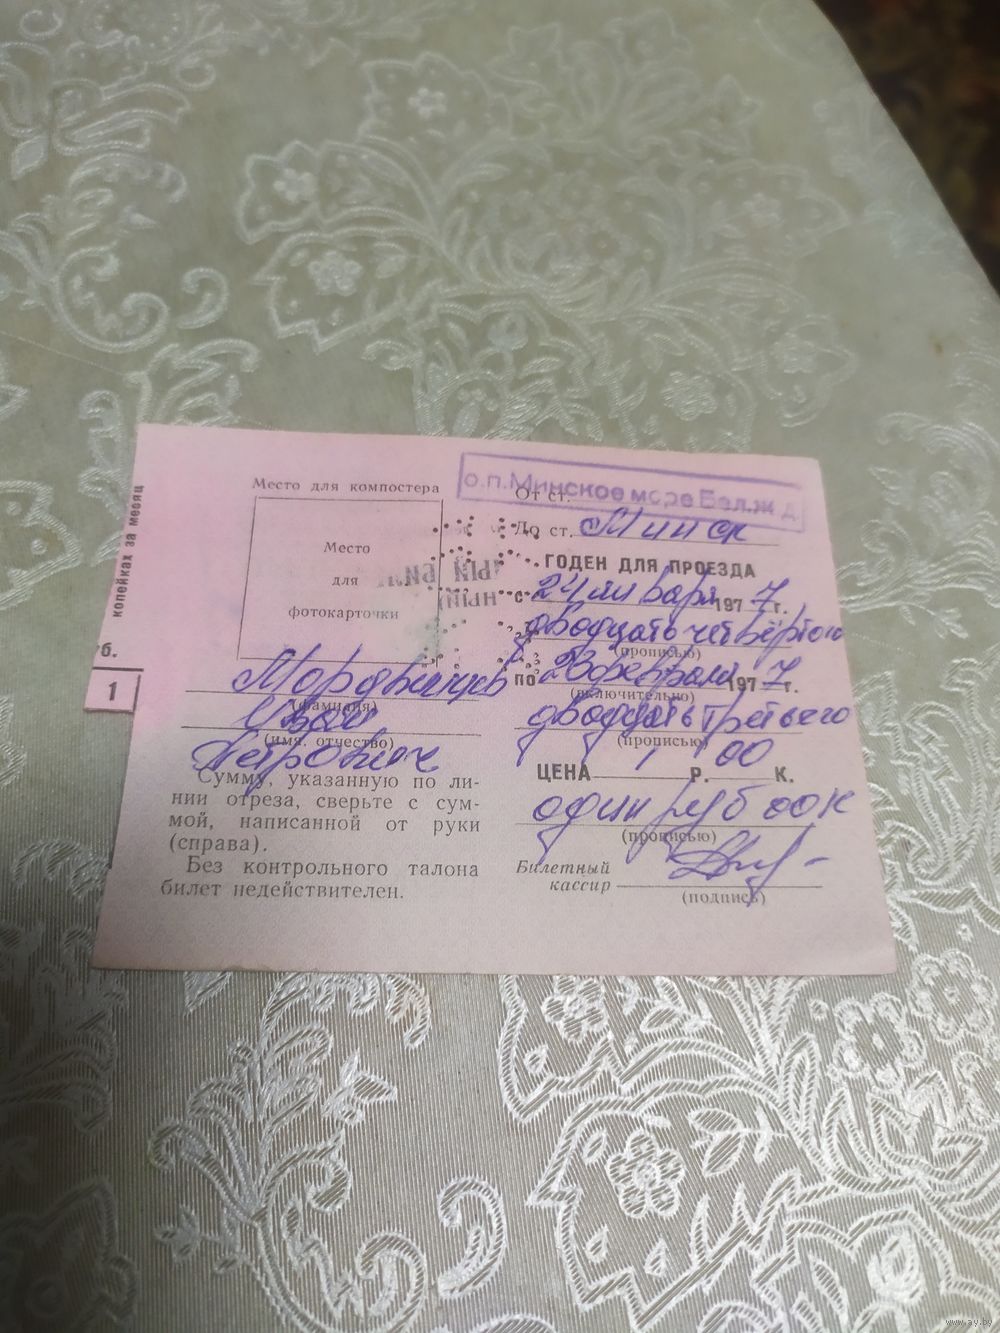 копейках за месяц
уб.
1
Место для компостера
Место
для
фотокарточки
Мордвинцев
(фамилия)
Иван
(имя, отчество)
Петрович
Сумму, указанную по ли-
нии отреза, сверьте с сум-
мой, написанной от руки
(справа).
Без контрольного талона
билет недействителен.
о.п. Минское море Бел.ж.д.
От ст.
До ст. Минск
ГОДЕН ДЛЯ ПРОЕЗДА
с 24 января 1977 г.
двадцать четвёртого
(прописью)
по 23 февраля 1977 г.
(включительно)
двадцать третьего
(прописью)
ЦЕНА 1 р. 00 к.
один руб 00 к
(прописью)
Билетный
кассир
(подпись)
www.ay.by